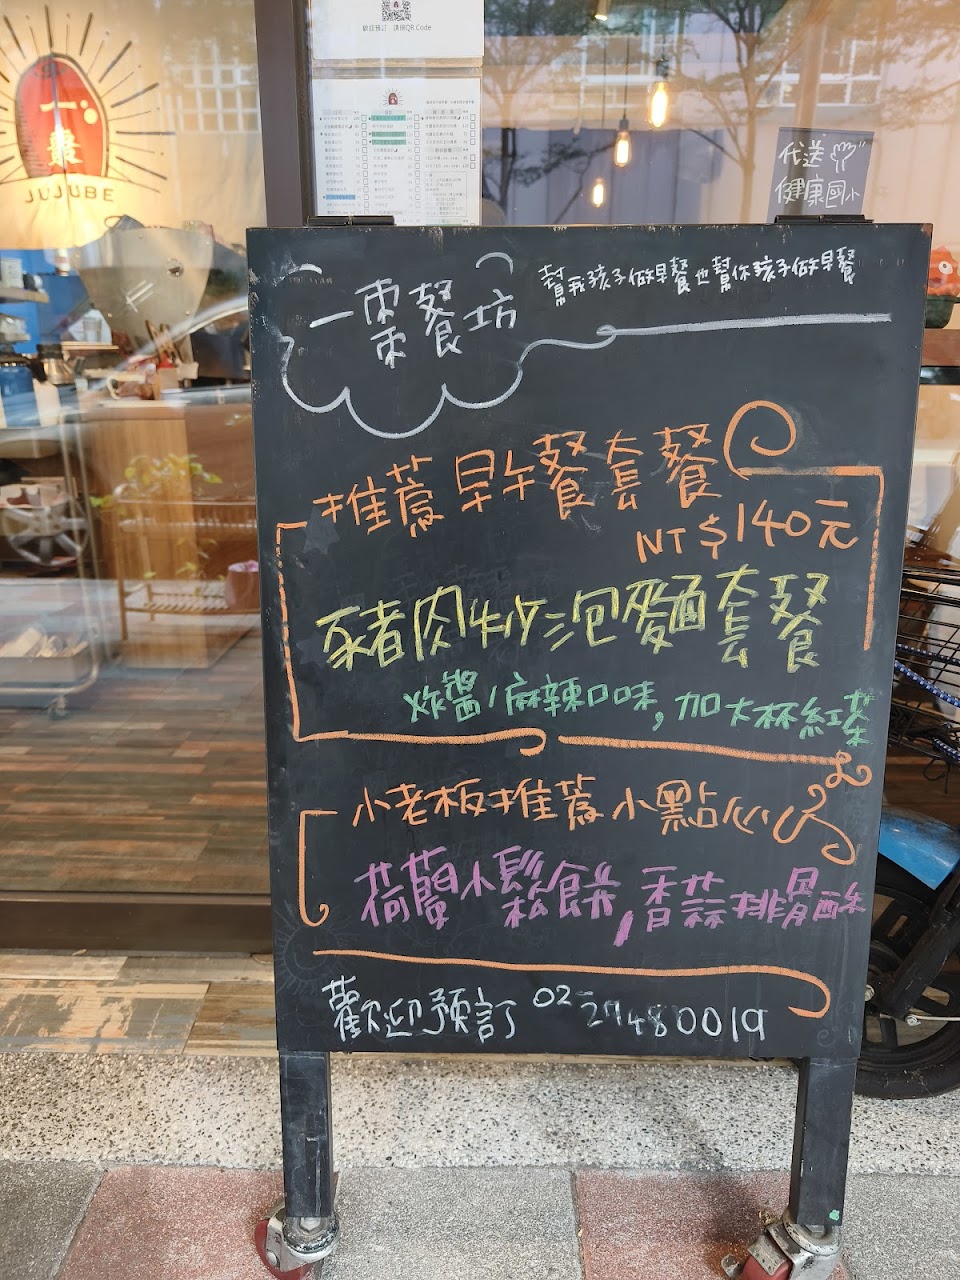 歡迎預訂 請掃QR Code
一棗
JUJUBE
代送
健康國小
一棗餐坊
幫我孩子做早餐也幫你孩子做早餐
推薦早午餐套餐
NT$140元
豬肉炒泡麵套餐
炸醬/麻辣口味,加大杯紅茶
小老板推薦小點心
荷蘭小鬆餅,香蒜排骨酥
歡迎預訂 02-27480019